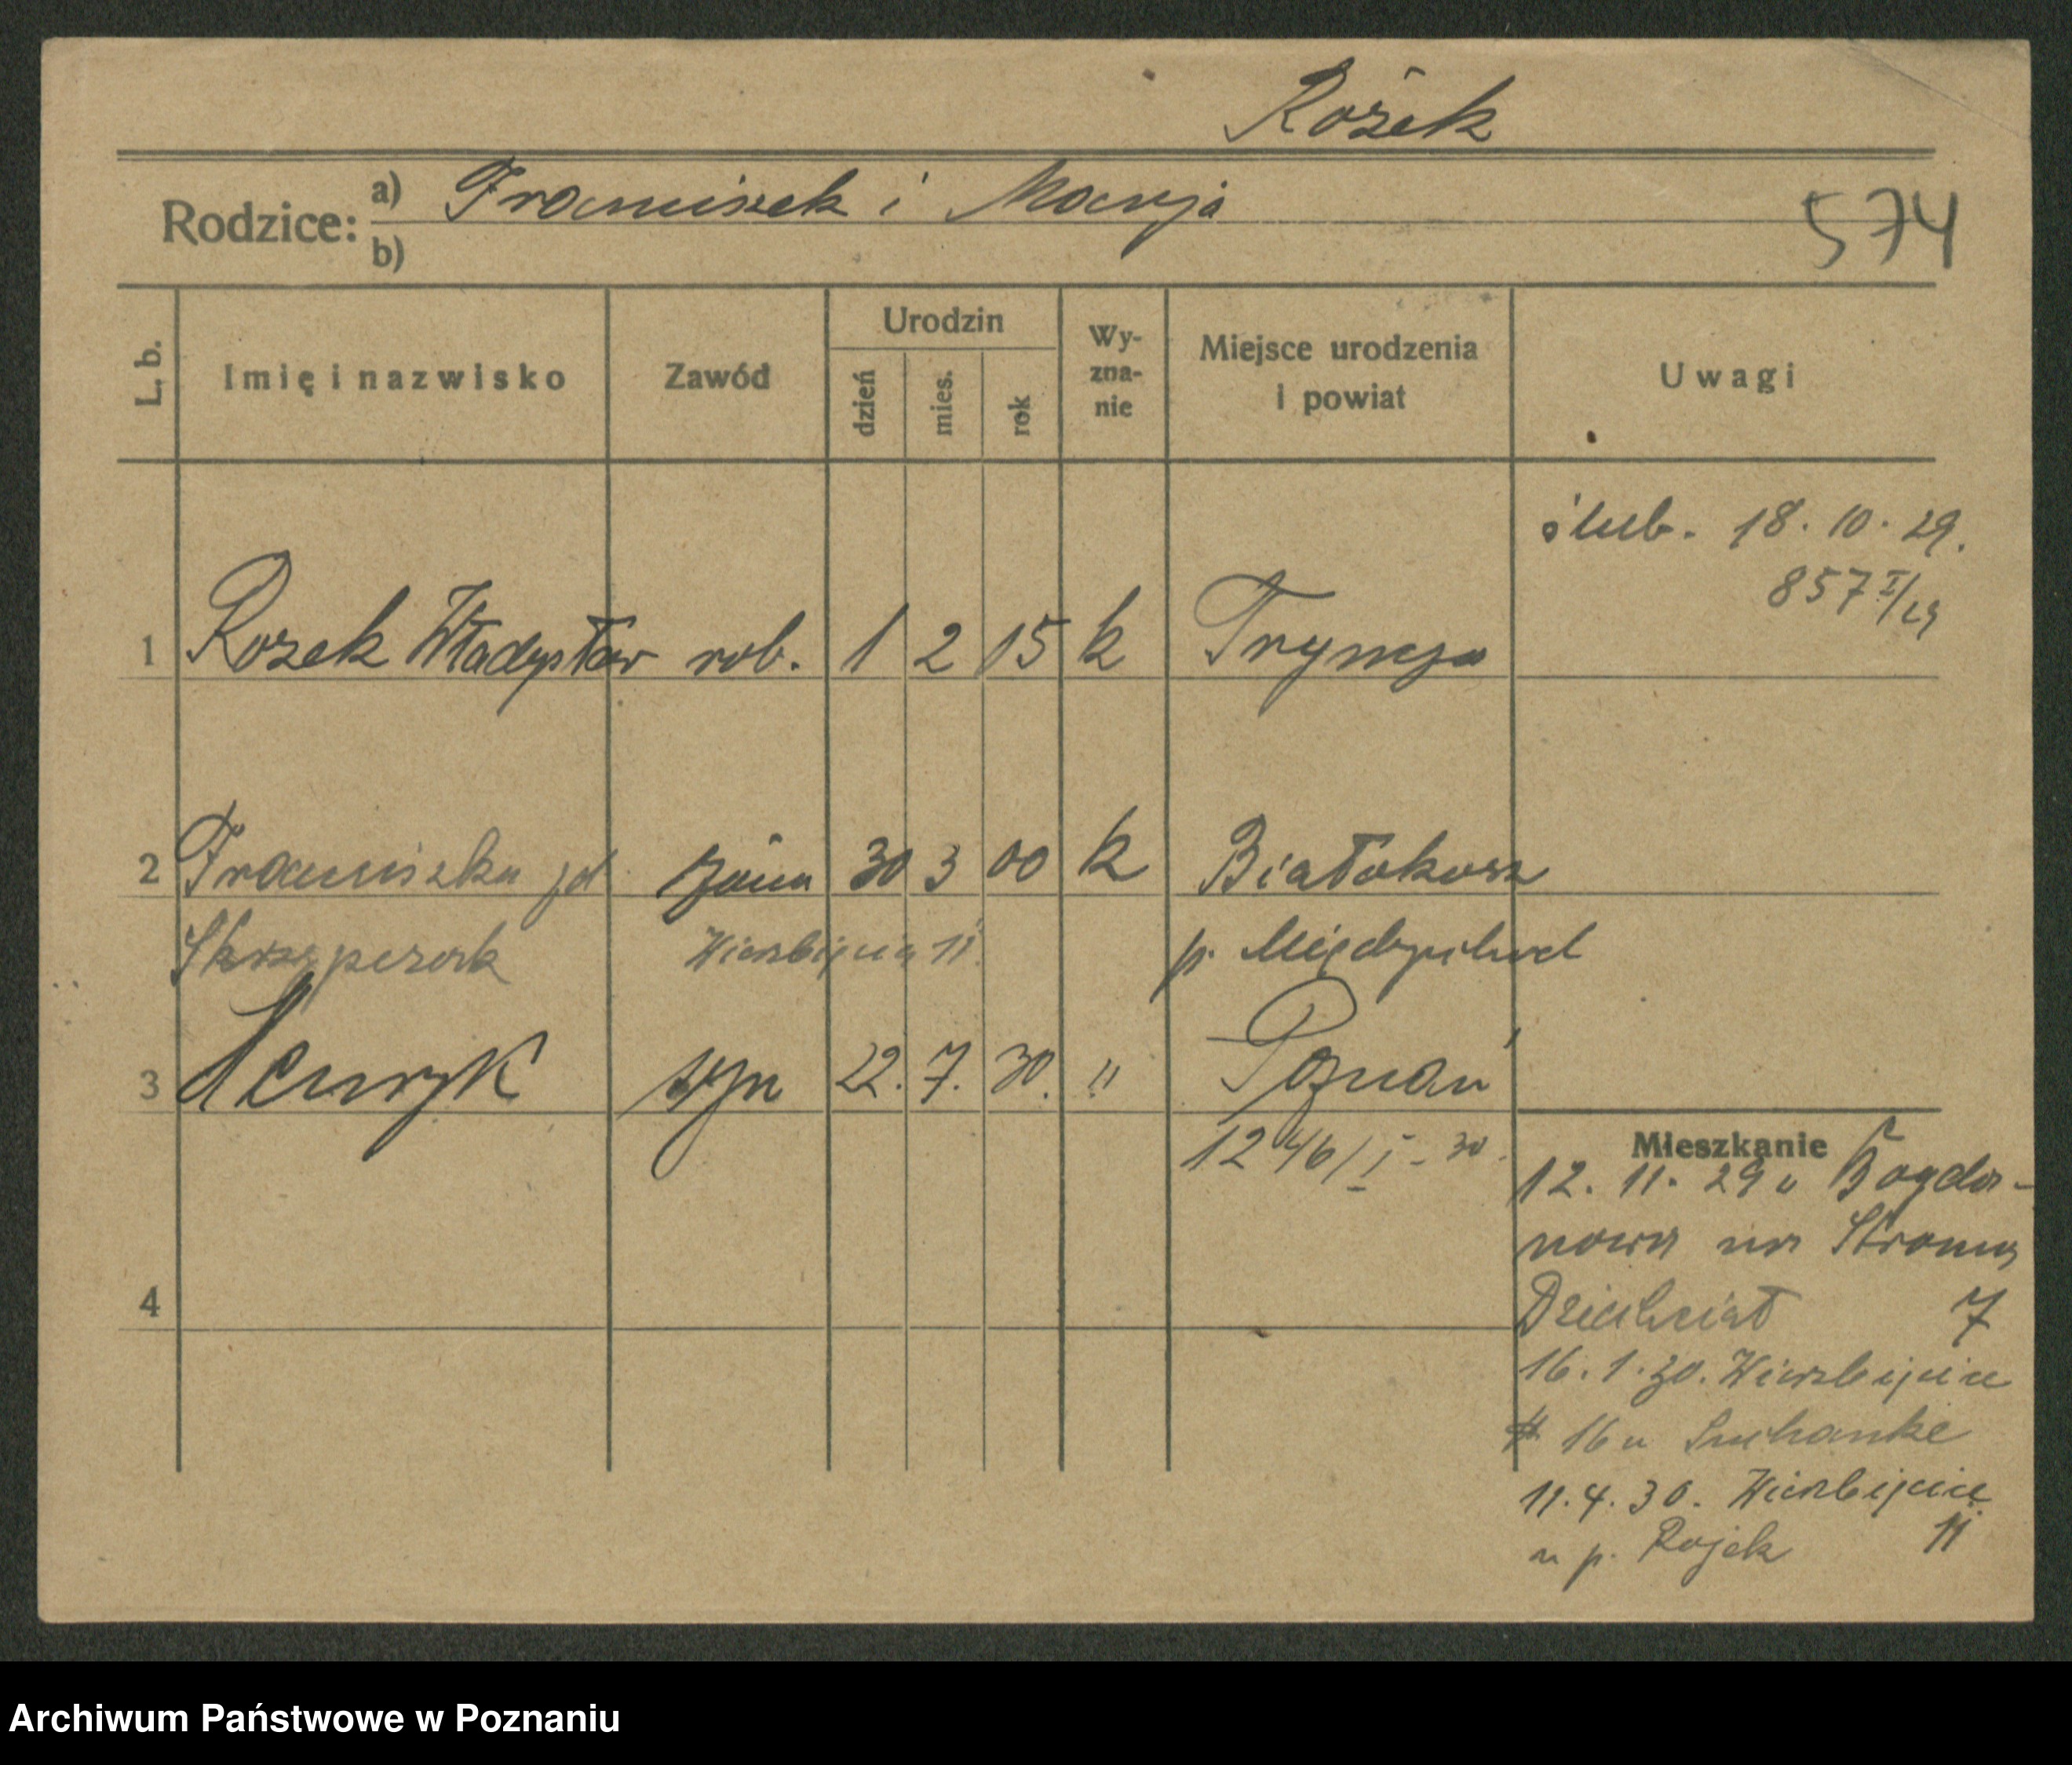 Rożek
Rodzice: a) Franciszek i Marya
b)
574
L. b.
Imię i nazwisko
Zawód
Urodzin
dzień
mies.
rok
Wy-
zna-
nie
Miejsce urodzenia
i powiat
Uwagi
ślub. 18. 10. 29.
857 I/29
1 Rożek Władysław rob. 1 2 05 k
2 Franciszka żona 30 3 00 k Białokosz
Wierzbięcice 11 p. Międzychód
3 Henryk syn 22. 7. 30. " Poznań
1246/I - 30.
4
Mieszkanie
12. 11. 29 u Bogda-
nowa na Stroma
7
16. 1. 30. Wierzbięcice
16 u Suchanke
11. 4. 30. Wierzbięcice
u p. Rojek 11
Archiwum Państwowe w Poznaniu